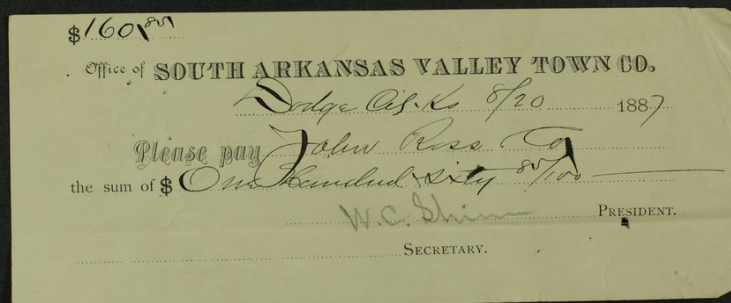 $160.85
Office of SOUTH ARKANSAS VALLEY TOWN CO.
Dodge City Ks 8/20 1887
Please pay John Ross Co
the sum of $ One Hundred sixty 85/100
W. C. PRESIDENT.
SECRETARY.